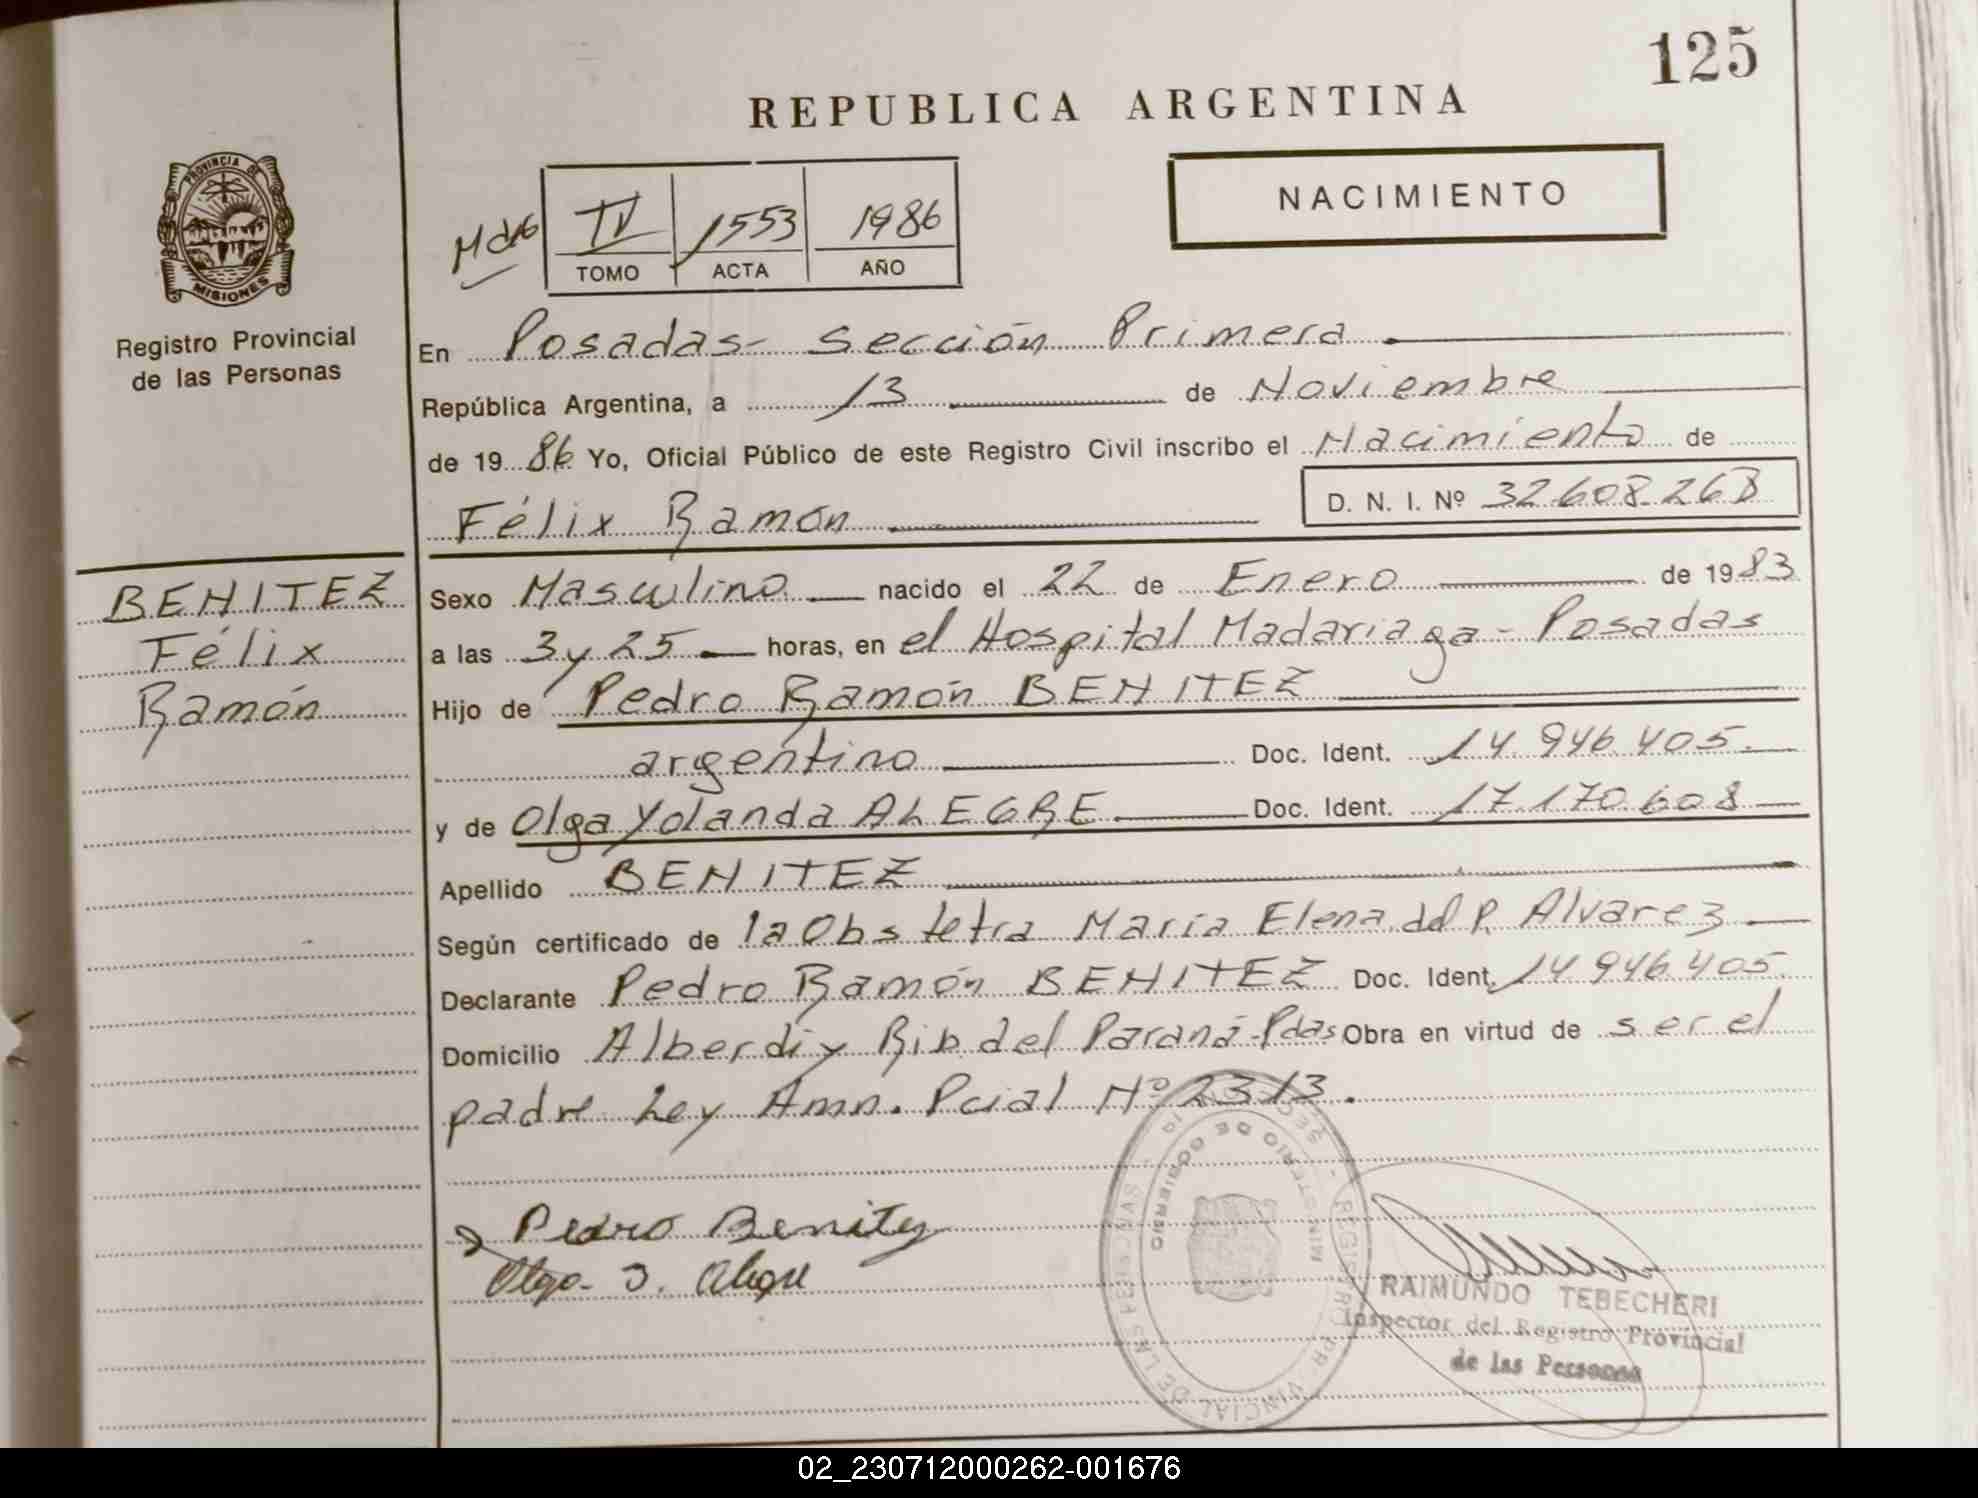 125
REPUBLICA ARGENTINA
PROVINCIA DE
MISIONES
Registro Provincial
de las Personas
NACIMIENTO
IV 1553 1986
TOMO ACTA AÑO
En Posadas - Sección Primera
República Argentina, a 13 de Noviembre
de 19 86 Yo, Oficial Público de este Registro Civil inscribo el Nacimiento de
Félix Ramón D. N. I. Nº 32.608.268
BENITEZ
Félix
Ramón
Sexo Masculino nacido el 22 de Enero de 19 83
a las 3 y 25 horas, en el Hospital Madariaga - Posadas
Hijo de Pedro Ramón BENITEZ
argentino Doc. Ident. 14.946.405
y de Olga Yolanda ALEGRE Doc. Ident. 17.170.608
Apellido BENITEZ
Según certificado de la Obstetra María Elena del P. Alvarez
Declarante Pedro Ramón BENITEZ Doc. Ident. 14.946.405
Domicilio Alberdi y Rib. del Paraná - Pdas Obra en virtud de ser el
padre Ley Amn. Pcial Nº 2313.
Pedro Benitez
Olga Alegre
MINISTERIO DE GOBIERNO
REGISTRO PROVINCIAL DE LAS PERSONAS
RAIMUNDO TEBECHERI
Inspector del Registro Provincial
de las Personas
02_230712000262-001676